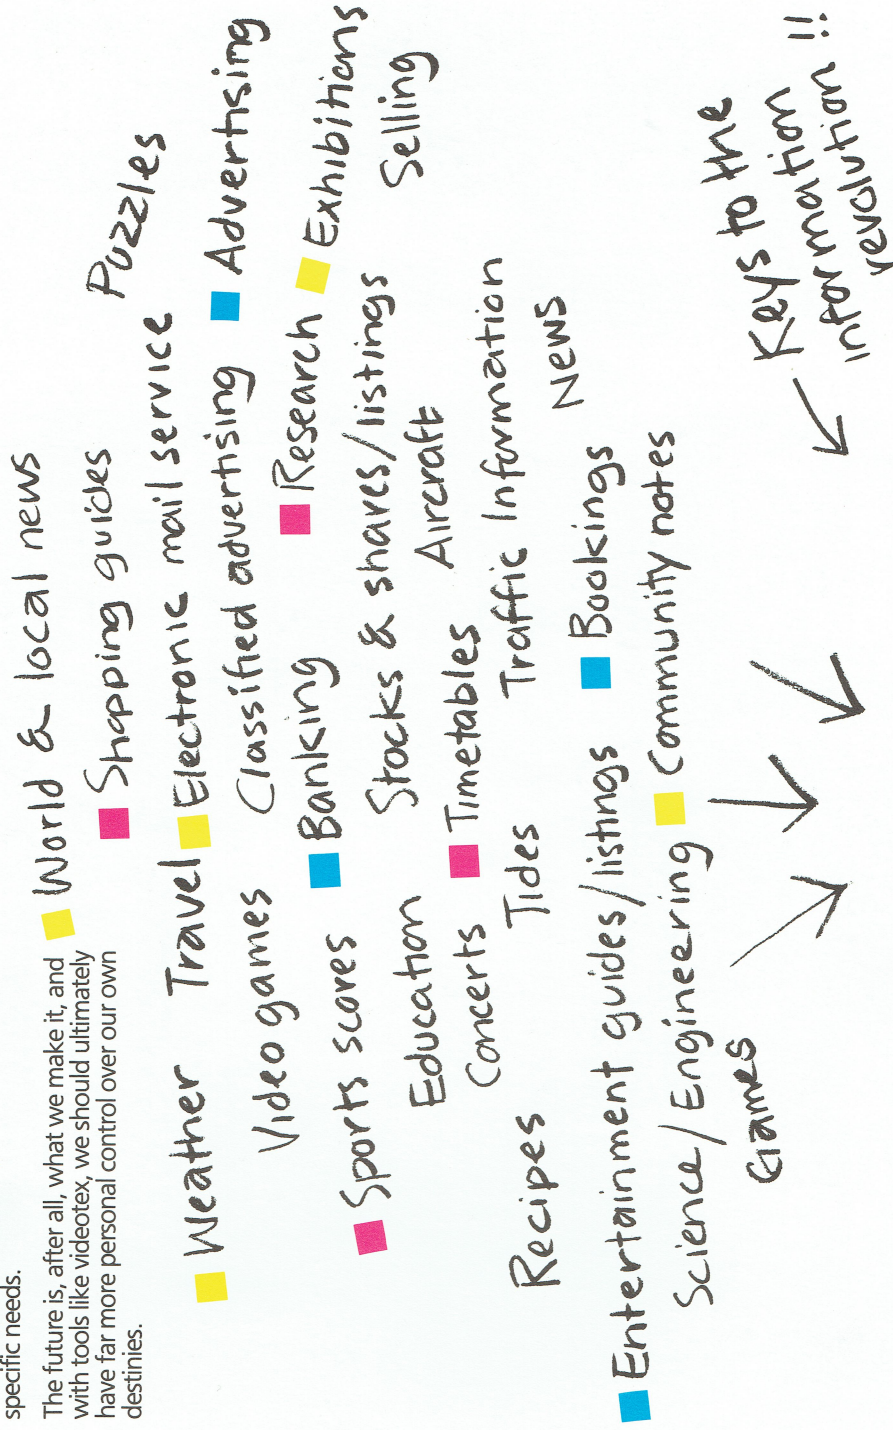 specific needs.
The future is, after all, what we make it, and
with tools like videotex, we should ultimately
have far more personal control over our own
destinies.
World & local news
Shopping guides
Puzzles
Weather Travel Electronic mail service
Video games Classified advertising Advertising
Sports scores Banking Research Exhibitions
Stocks & shares/listings Selling
Education Aircraft
Concerts Timetables
Tides Traffic Information
Recipes News
Entertainment guides/listings Bookings
Science/Engineering Community notes
Games
Keys to the
information
revolution !!